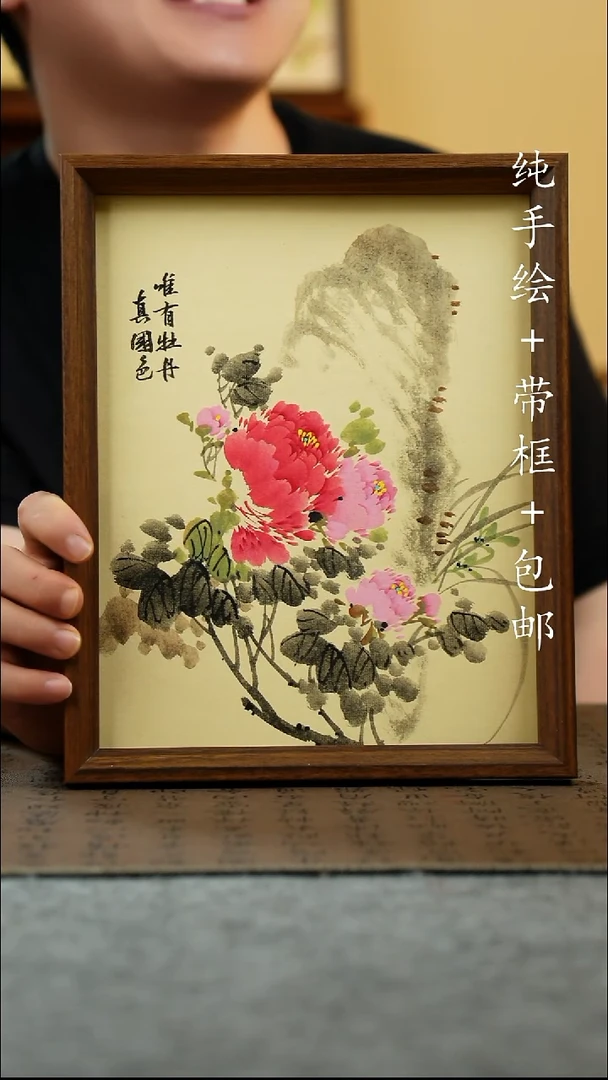 唯有牡丹
真國色
纯手绘+带框+包邮